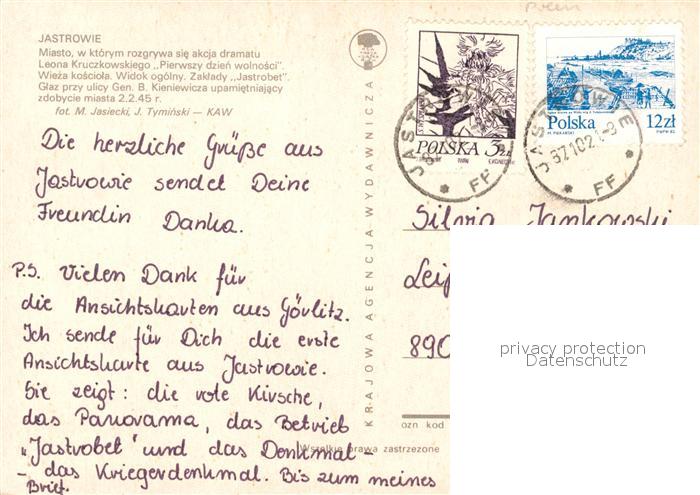 JASTROWIE
Miasto, w którym rozgrywa się akcja dramatu
Leona Kruczkowskiego „Pierwszy dzień wolności”.
Wieża kościoła. Widok ogólny. Zakłady „Jastrobet”.
Głaz przy ulicy Gen. B. Kieniewicza upamiętniający
zdobycie miasta 2.2.45 r.
fot. M. Jasiecki, J. Tymiński — KAW
Die herzliche Grüße aus
Jastrowie sendet Deine
Freundin Danka.
P.S. Vielen Dank für
die Ansichtskarten aus Görlitz.
Ich sende für Dich die erste
Ansichtskarte aus Jastrowie.
Sie zeigt: die rote Kirche,
das Panorama, das Betrieb
„Jastrobet” und das Denkmal-
- das Kriegerdenkmal. Bis zum meines
Brief.
KRAJOWA AGENCJA WYDAWNICZA
Wszelkie prawa zastrzeżone
POLSKA 3zł
Polska 12zł
JASTROWIE
FF
JASTROWIE
FF
Silvia Jankowski
Leip
890
ozn kod
privacy protection
Datenschutz